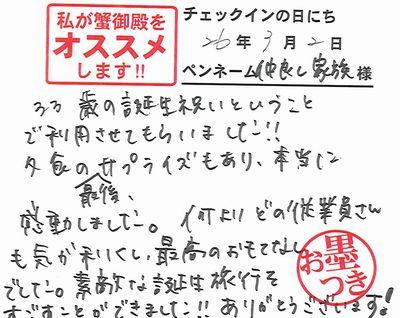 私が蟹御殿を
オススメ
します!!
チェックインの日にち
26年3月2日
ペンネーム 仲良し家族 様
33歳の誕生祝いということ
で利用させてもらいました!!
夕食のサプライズもあり、本当に
最後、
感動しました。何よりどの従業員さん
も気が利くし、最高のおもてなし
でした。素敵な誕生旅行を
すごすことができました!!ありがとうございます!
お墨つき